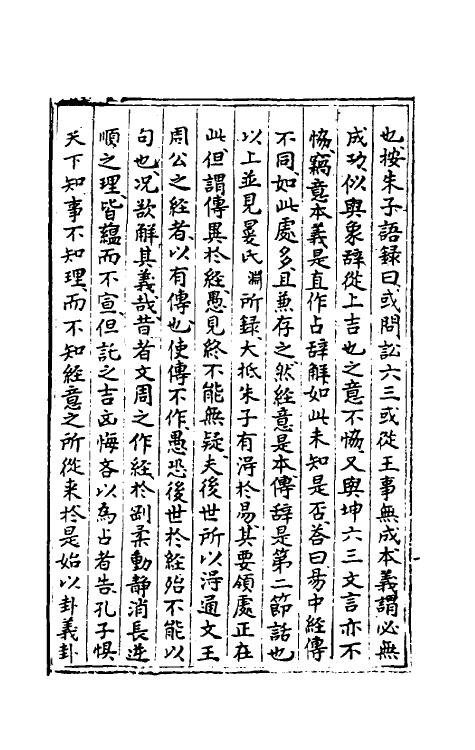 也按朱子語録曰或問訟六三或從王事無成本義謂必無
成功似與象辭從上吉也之意不恊又與坤六三文言亦不
恊竊意本義是直作占辭解如此未知是否荅曰易中經傳
不同如此處多且兼存之然經意是本傳辭是第二節話也
以上並見㬅氏淵所録大抵朱子有淂於易其要領處正在
此但謂傳異於經愚見終不能無疑夫後世所以淂通文王
周公之經者以有傳也使傳不作愚恐後世於經殆不能以
句也况敢解其義哉昔者文周之作經於剛柔動静消長逆
順之理皆藴而不宣但託之吉凶悔吝以為占者告孔子惧
天下知事不知理而不知經意之所從来於是始以卦義卦